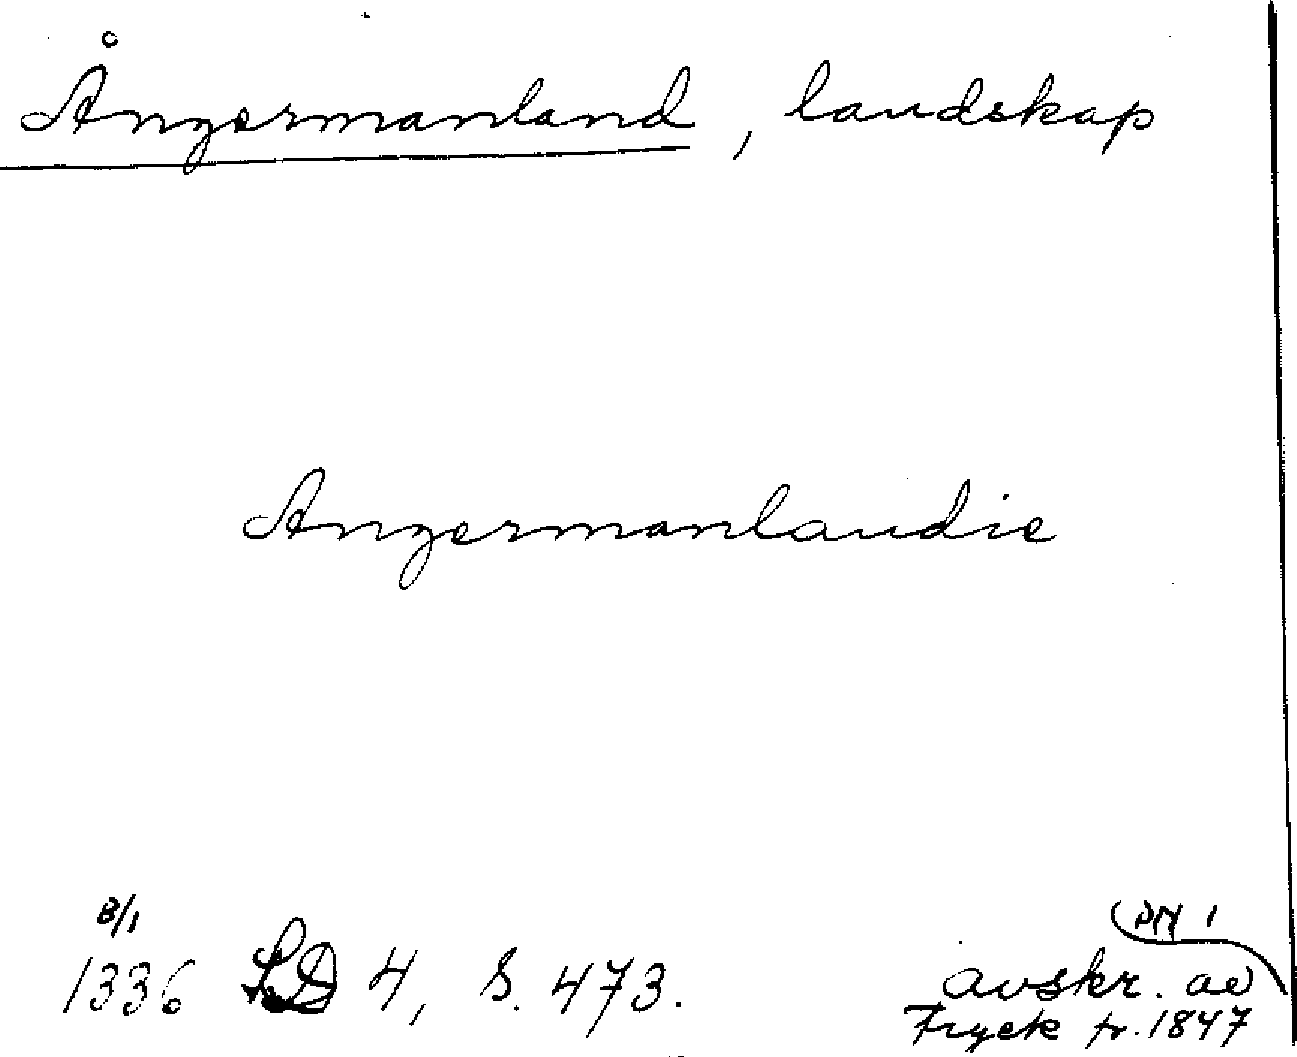 Ångermanland, landskap
Angermanlandie
8/1
1336 SD 4, S. 473.
DN 1
avskr. av
Tryck fr. 1847